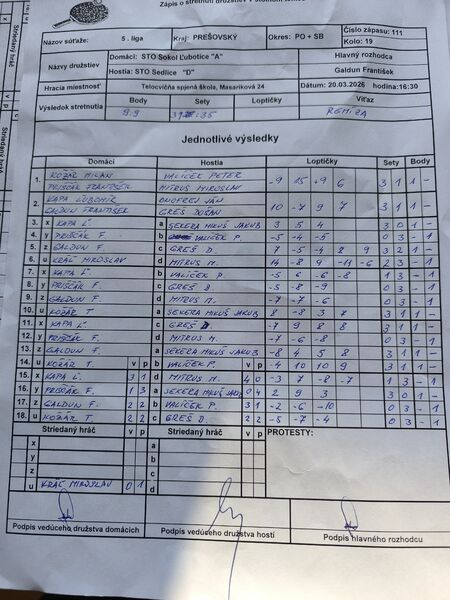 Zápis o stretnutí družstiev v stolnom tenise
Názov súťaže: 5. liga Kraj: PREŠOVSKÝ Okres: PO + SB Číslo zápasu: 111 Kolo: 19
Názvy družstiev Domáci: STO Sokol Ľubotice "A" Hlavný rozhodca
Hostia: STO Sedlice "D" Galdun František
Hracia miestnosť Telocvičňa spojená škola, Masarikova 24 Dátum: 20.03.2026 hodina:16:30
Výsledok stretnutia Body Sety Loptičky Víťaz
9:9 REMÍZA
Jednotlivé výsledky
Domáci Hostia Loptičky Sety Body
1. KOŽÁR MILAN VALÍČEK PETER -9 15 +9 6 3 1 1 -
PRIŠČÁK FRANTIŠEK MITRUS MIROSLAV
2. KAPA ĽUBOMÍR ONOFREJ JÁN 10 -7 9 7 3 1 1 -
GALDUN FRANTIŠEK GREŠ DUŠAN
3. x KAPA Ľ. a SEKERA MIKUŠ JAKUB 3 5 4 3 0 1 -
4. y PRIŠČÁK F. b VALÍČEK P. -5 -4 -5 0 3 - 1
5. z GALDUN F. c GREŠ D. 7 -5 -4 8 9 3 2 1 -
6. u KRÁĽ MIROSLAV d MITRUS M. 14 -8 9 -11 -6 2 3 - 1
7. x KAPA Ľ. b VALÍČEK P. -5 6 -6 -8 1 3 - 1
8. y PRIŠČÁK F. c GREŠ D. -5 -8 -9 0 3 - 1
9. z GALDUN F. d MITRUS M. -7 -7 -6 0 3 - 1
10. u KOŽÁR T. a SEKERA MIKUŠ JAKUB 8 -8 3 7 3 1 1 -
11. x KAPA Ľ. c GREŠ D. -7 9 8 8 3 1 1 -
12. y PRIŠČÁK F. d MITRUS M. -7 -6 -8 0 3 - 1
13. z GALDUN F. a SEKERA MIKUŠ JAKUB -8 4 5 8 3 1 1 -
14. u KOŽÁR T. v p b VALÍČEK P. v p -4 10 10 9 3 1 1 -
15. x KAPA Ľ. 3 1 d MITRUS M. 4 0 -3 7 -8 -7 1 3 - 1
16. y PRIŠČÁK F. 1 3 a SEKERA MIKUŠ JAK. 0 4 2 9 3 3 0 1 -
17. z GALDUN F. 2 2 b VALÍČEK P. 3 1 -2 -6 -10 0 3 - 1
18. u KOŽÁR T. 2 2 c GREŠ D. 2 2 -5 -7 -4 0 3 - 1
Striedaný hráč v p Striedaný hráč v p PROTESTY:
x a
y b
z c
u KRÁĽ MIROSLAV 0 1 d
Podpis vedúceho družstva domácich Podpis vedúceho družstva hostí Podpis hlavného rozhodcu